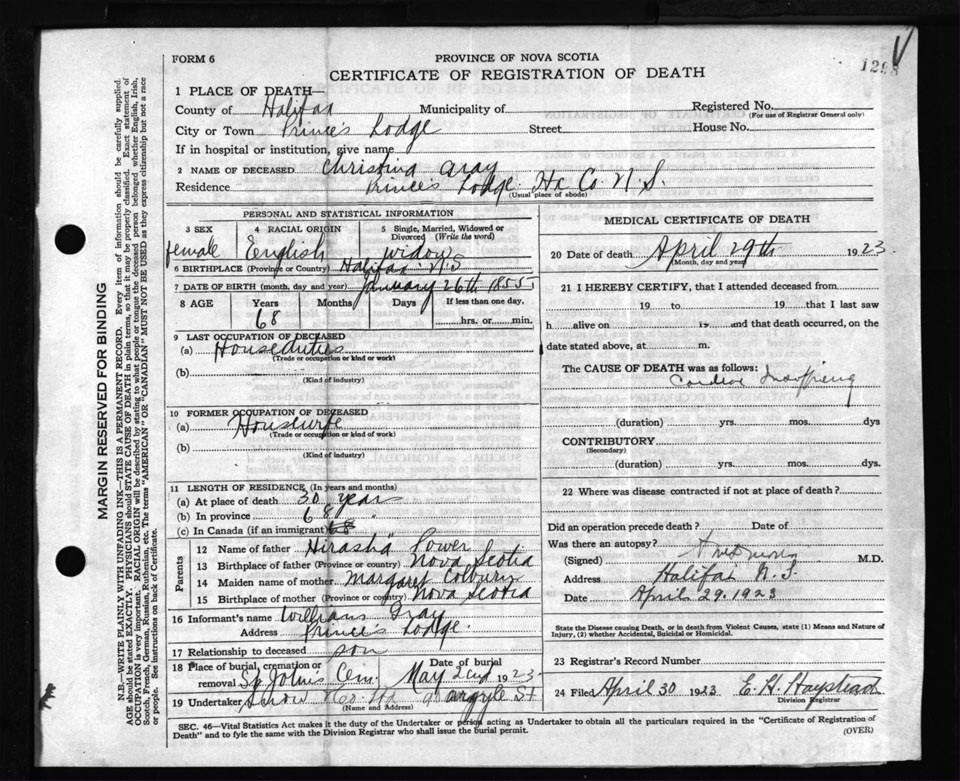 FORM 6
PROVINCE OF NOVA SCOTIA
CERTIFICATE OF REGISTRATION OF DEATH
129
1 PLACE OF DEATH—
County of Halifax Municipality of Registered No.
(For use of Registrar General only)
City or Town Prince's Lodge Street House No.
If in hospital or institution, give name
2 NAME OF DECEASED Christina Gray
Residence Prince's Lodge Hx Co. N.S.
(Usual place of abode)
PERSONAL AND STATISTICAL INFORMATION
3 SEX 4 RACIAL ORIGIN 5 Single, Married, Widowed or Divorced (Write the word)
female English widow
6 BIRTHPLACE (Province or Country) Halifax N.S
7 DATE OF BIRTH (month, day and year) January 26th 1855
8 AGE Years Months Days If less than one day,
68 hrs. or min.
9 LAST OCCUPATION OF DECEASED
(a) Houseduties
(Trade or occupation or kind of work)
(b)
(Kind of industry)
10 FORMER OCCUPATION OF DECEASED
(a) Housewife
(Trade or occupation or kind of work)
(b)
(Kind of industry)
11 LENGTH OF RESIDENCE (In years and months)
(a) At place of death 30 year
(b) In province 68 "
(c) In Canada (if an immigrant) 68
Parents
12 Name of father Power
13 Birthplace of father (Province or country) Nova Scotia
14 Maiden name of mother Margaret
15 Birthplace of mother (Province or country) Nova Scotia
16 Informant's name William Gray
Address Prince's Lodge.
17 Relationship to deceased son
18 Place of burial, cremation or removal St. Johns Cem. Date of burial May 2nd 1923
19 Undertaker Snow & Co Ltd 9 argyle St
(Name and Address)
MEDICAL CERTIFICATE OF DEATH
20 Date of death April 29th 1923
(Month, day and year)
21 I HEREBY CERTIFY, that I attended deceased from
19 to 19 that I last saw
h alive on 19 and that death occurred, on the
date stated above, at m.
The CAUSE OF DEATH was as follows:
(duration) yrs. mos. dys
CONTRIBUTORY
(Secondary)
(duration) yrs. mos. dys.
22 Where was disease contracted if not at place of death?
Did an operation precede death? Date of
Was there an autopsy?
(Signed) M.D.
Address Halifax N.S.
Date April 29. 1923
State the Disease causing Death, or in death from Violent Causes, state (1) Means and Nature of Injury, (2) whether Accidental, Suicidal or Homicidal.
23 Registrar's Record Number
24 Filed April 30 1923 E. H. Haystead
Division Registrar
SEC. 46—Vital Statistics Act makes it the duty of the Undertaker or person acting as Undertaker to obtain all the particulars required in the "Certificate of Registration of
Death" and to fyle the same with the Division Registrar who shall issue the burial permit. (OVER)
MARGIN RESERVED FOR BINDING
N.B.—WRITE PLAINLY WITH UNFADING INK—THIS IS A PERMANENT RECORD. Every item of information should be carefully supplied.
AGE should be stated EXACTLY. PHYSICIANS should STATE CAUSE OF DEATH in plain terms, so that it may be properly classified. Exact statement of
OCCUPATION is very important. RACIAL ORIGIN will be described by stating to what people or tongue the deceased person belonged whether English, Irish,
Scotch, French, German, Russian, Ruthenian, etc. The terms "AMERICAN" OR "CANADIAN" MUST NOT BE USED as they express citizenship but not a race
or people. See instructions on back of Certificate.